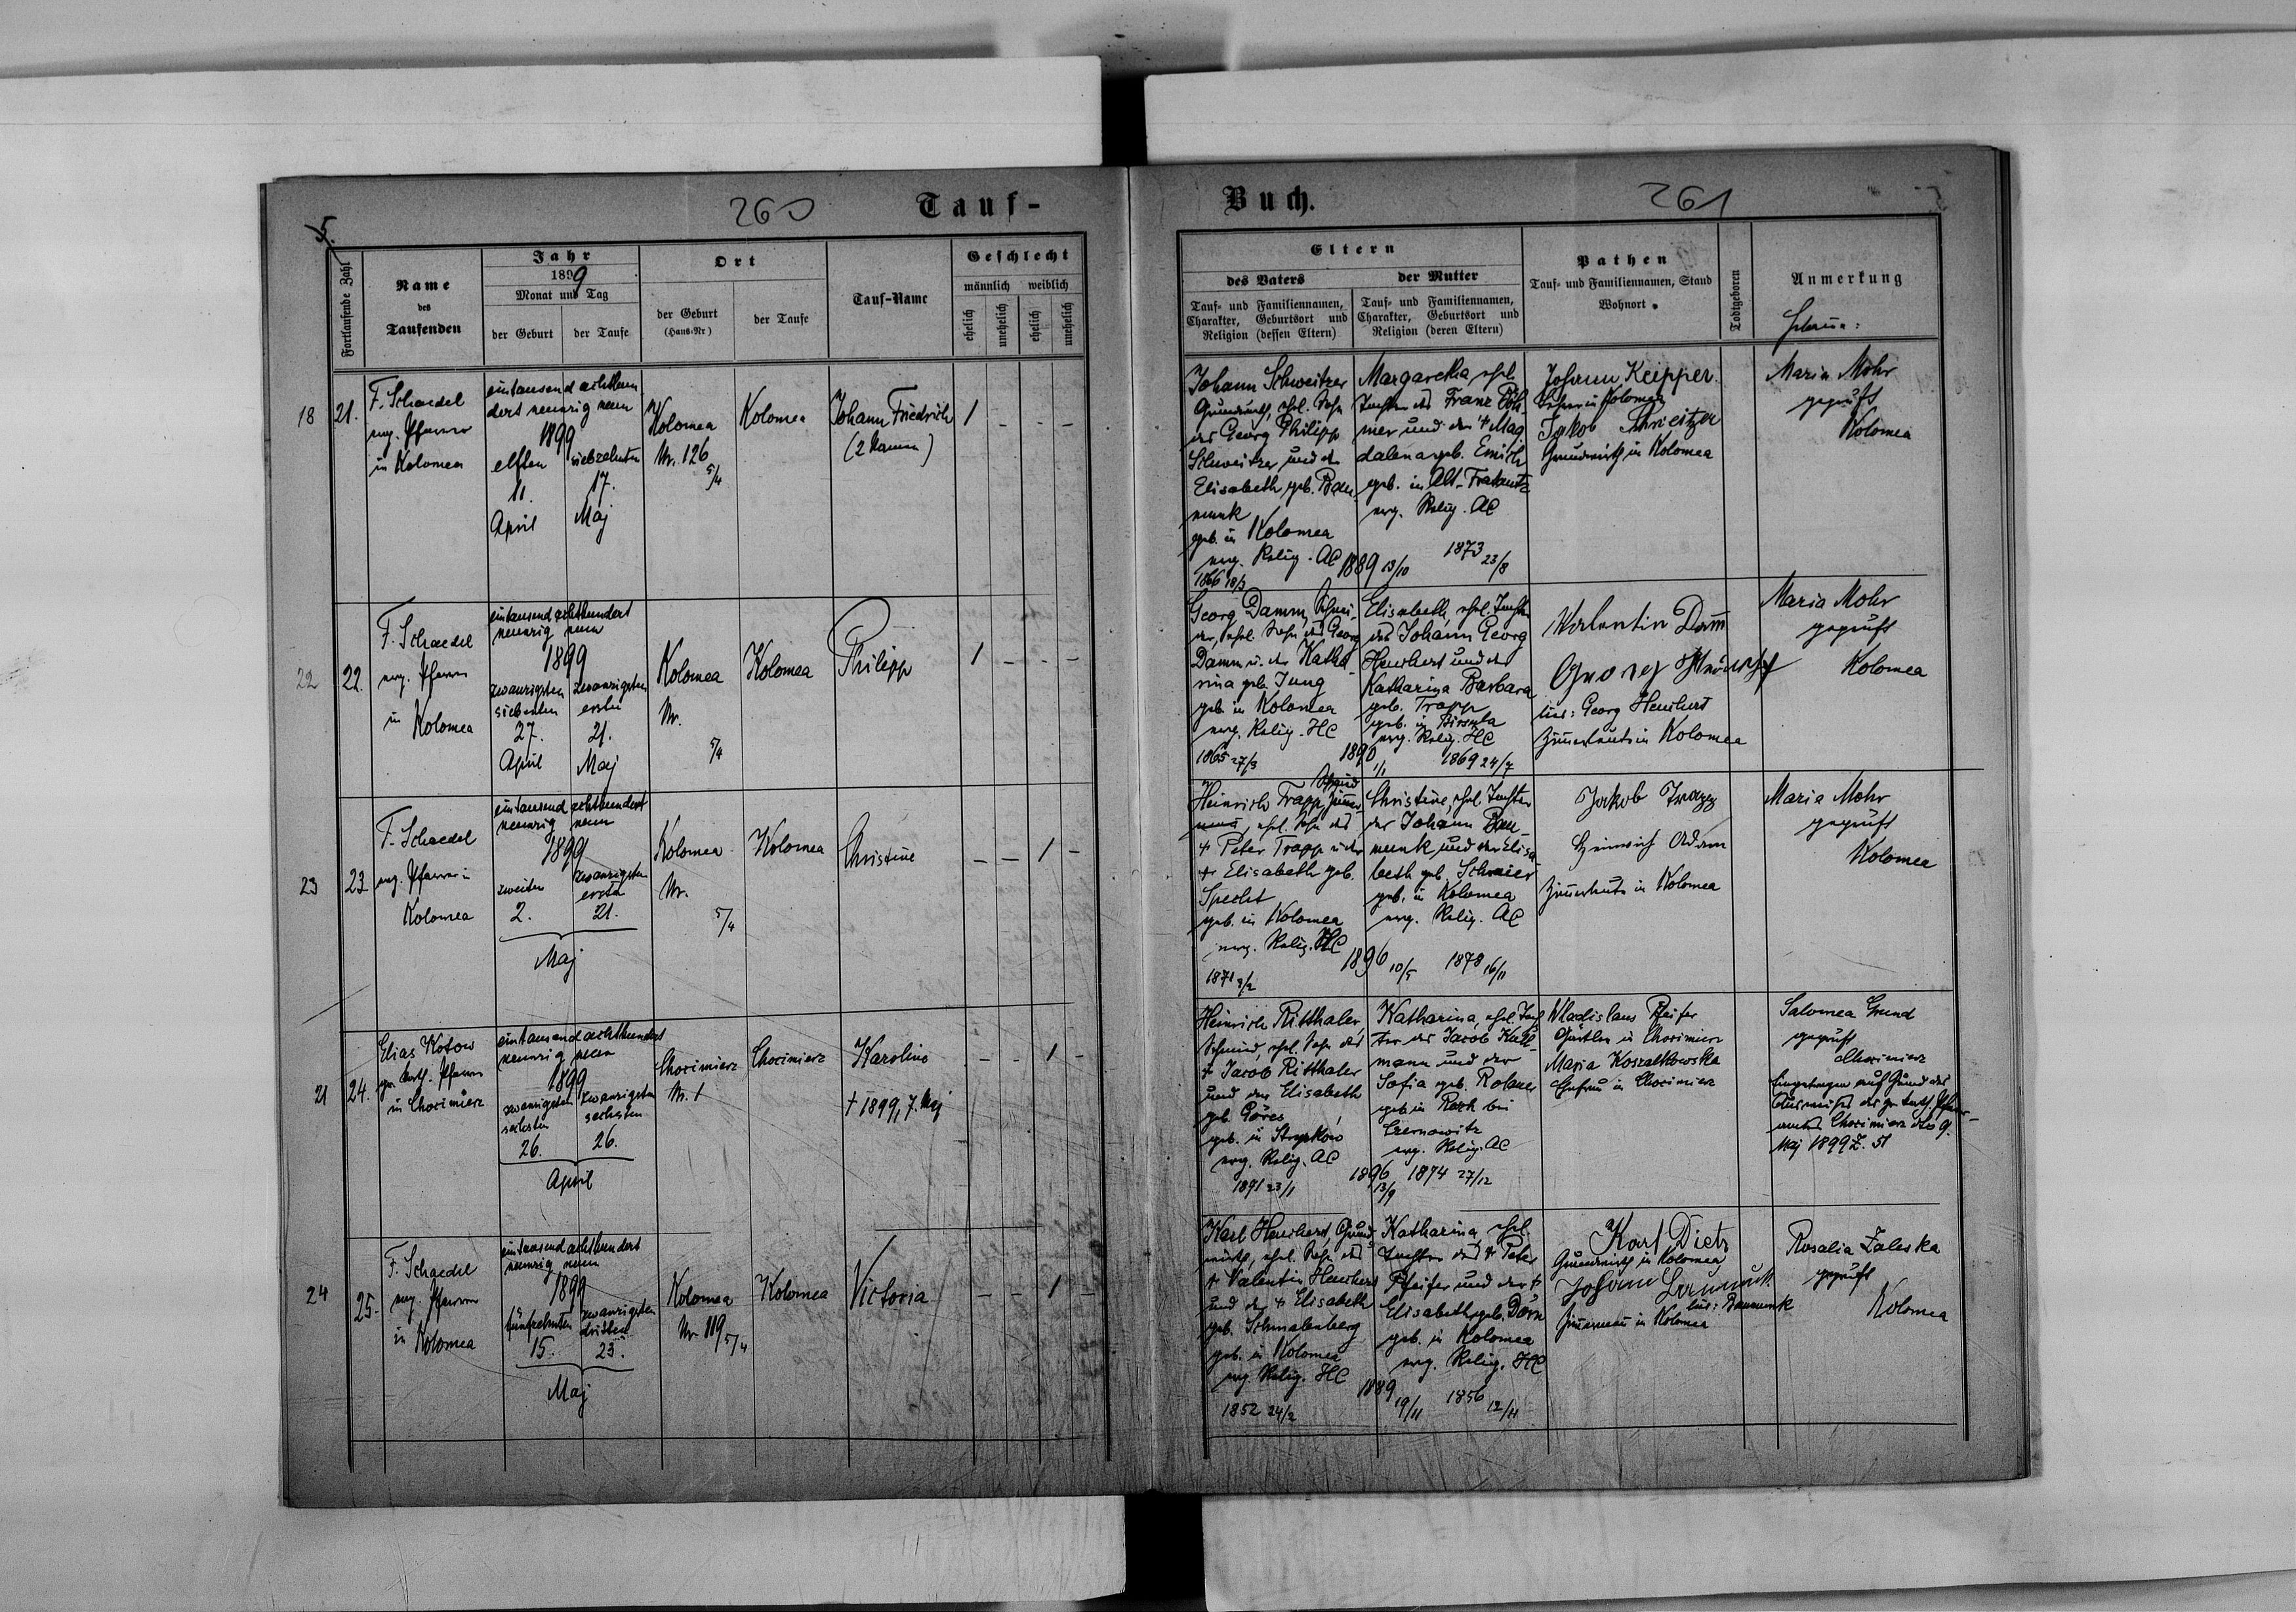 260
Tauf-
5.
Fortlaufende Zahl
Name
des
Taufenden
Jahr
1899
Monat und Tag
der Geburt
der Taufe
Ort
der Geburt
(Haus-Nr)
der Taufe
Tauf-Name
Geschlecht
männlich
weiblich
ehelich
unehelich
ehelich
unehelich
18
21.
F. Schaedel
evg. Pfarrer
in Kolomea
eintausend achthun
dert neunzig neun
1899
elften
11.
April
siebzehnten
17.
Maj
Kolomea
Nr. 126
5/4
Kolomea
Johann Friedrich
(2 Namen)
1 - - -
22
22.
F. Schaedel
evg. Pfarrer
in Kolomea
eintausend achthundert
neunzig neun
1899
zwanzigsten
siebenten
27.
April
zwanzigsten
ersten
21.
Maj
Kolomea
Nr.
5/4
Kolomea
Philipp
1 - - -
23
23
F. Schaedel
evg. Pfarrer in
Kolomea
eintausend achthundert
neunzig neun
1899
zweiten
2.
zwanzigsten
ersten
21.
Maj
Kolomea
Nr.
5/4
Kolomea
Christine
- - 1 -
21
24.
Elias Kotow
gr. kath. Pfarrer
in Chocimierz
eintausend achthundert
neunzig neun
1899
zwanzigsten
sechsten
26.
zwanzigsten
sechsten
26.
April
Chocimierz
Nr. 1
Chocimierz
Karoline
† 1899, 7. Maj
- - 1 -
24
25.
F. Schaedel
evg. Pfarrer
in Kolomea
eintausend achthundert
neunzig neun
1899
fünfzehnten
15.
zwanzigsten
dritten
23.
Maj
Kolomea
Nr 119
5/4
Kolomea
Victoria
- - 1 -
Buch.
261
Eltern
des Vaters
der Mutter
Tauf- und Familiennamen,
Charakter, Geburtsort und
Religion (dessen Eltern)
Tauf- und Familiennamen,
Charakter, Geburtsort und
Religion (deren Eltern)
Pathen
Tauf- und Familiennamen, Stand
Wohnort
Todtgeboren
Anmerkung
Johann Schweitzer
Grundwirth, ehel. Sohn
des Georg Philipp
Schweitzer und der
Elisabeth geb. Bau
munk
geb. in Kolomea
evg. Relig. AC
1866 18/3
1889 13/10
Margaretha ehel.
Tochter des Franz
mer und der † Mag
dalena geb. Emich
geb. in Alt-Fratautz
evg. Relig. AC
1873 23/8
Johann Keipper
Lehrer in Kolomea
Jakob Schweitzer
Grundwirth in Kolomea
Maria Mohr
geprüft
Kolomea
Georg Damm, Schnei-
der, ehel. Sohn des Georg
Damm u. der Katha
rina geb. Jung
geb. in Kolomea
evg. Relig. HC
1865 27/3
1890 1/1
Elisabeth, ehel. Tochter
des Johann Georg
Heuchert und der
Katharina Barbara
geb. Trapp
geb. in Birsula
evg. Relig. HC
1869 24/7
Valentin Damm
lies: Georg Heuchert
Zimmerleute in Kolomea
Maria Mohr
geprüft
Kolomea
Heinrich Trapp, Zimmer
mann, ehel. Sohn des
† Peter Trapp u. der
† Elisabeth geb.
Specht
geb. in Kolomea
evg. Relig. HC
1871 3/2
1896 10/5
Christine, ehel. Tochter
des Johann Bau-
munk und der Elisa-
beth geb. Schreier
geb. in Kolomea
evg. Relig. AC
1878 16/11
Jakob Trapp
Heinrich Adam
Zimmerleute in Kolomea
Maria Mohr
geprüft
Kolomea
Heinrich Ritthaler,
Schmied, ehel. Sohn des
† Jacob Ritthaler
und der Elisabeth
geb. Göres
geb. in
evg. Relig. AC
1871 23/1
1896 13/9
Katharina, ehel. Toch
ter des Jacob Kull-
mann und der
Sofia geb.
geb in Rosch bei
Czernowitz
evg. Relig. AC
1874 27/12
Wladislaus Pfeifer
in Chocimierz
Maria Koszalkowska
Ehefrau in Chocimierz
Salomea Grund
geprüft
Chocimierz
Eingetragen auf Grund des
Ausweises des gr. kath. Pfarr-
amtes Chocimierz dto 9.
Maj 1899 Z. 51
Karl Heuchert, Grund
wirth, ehel. Sohn des
† Valentin Heuchert
und der † Elisabeth
geb. Schmalenberg
geb. in Kolomea
evg. Relig. HC
1852 24/2
1889 19/11
Katharina, ehel.
Tochter des † Peter
Pfeifer und der †
Elisabeth geb. Dörn
geb. in Kolomea
evg. Relig. HC
1856 12/11
Karl Dietz
Grundwirth in Kolomea
Johann
lies: Baumunk
Zimmermann in Kolomea
Rosalia Zaleska
geprüft
Kolomea